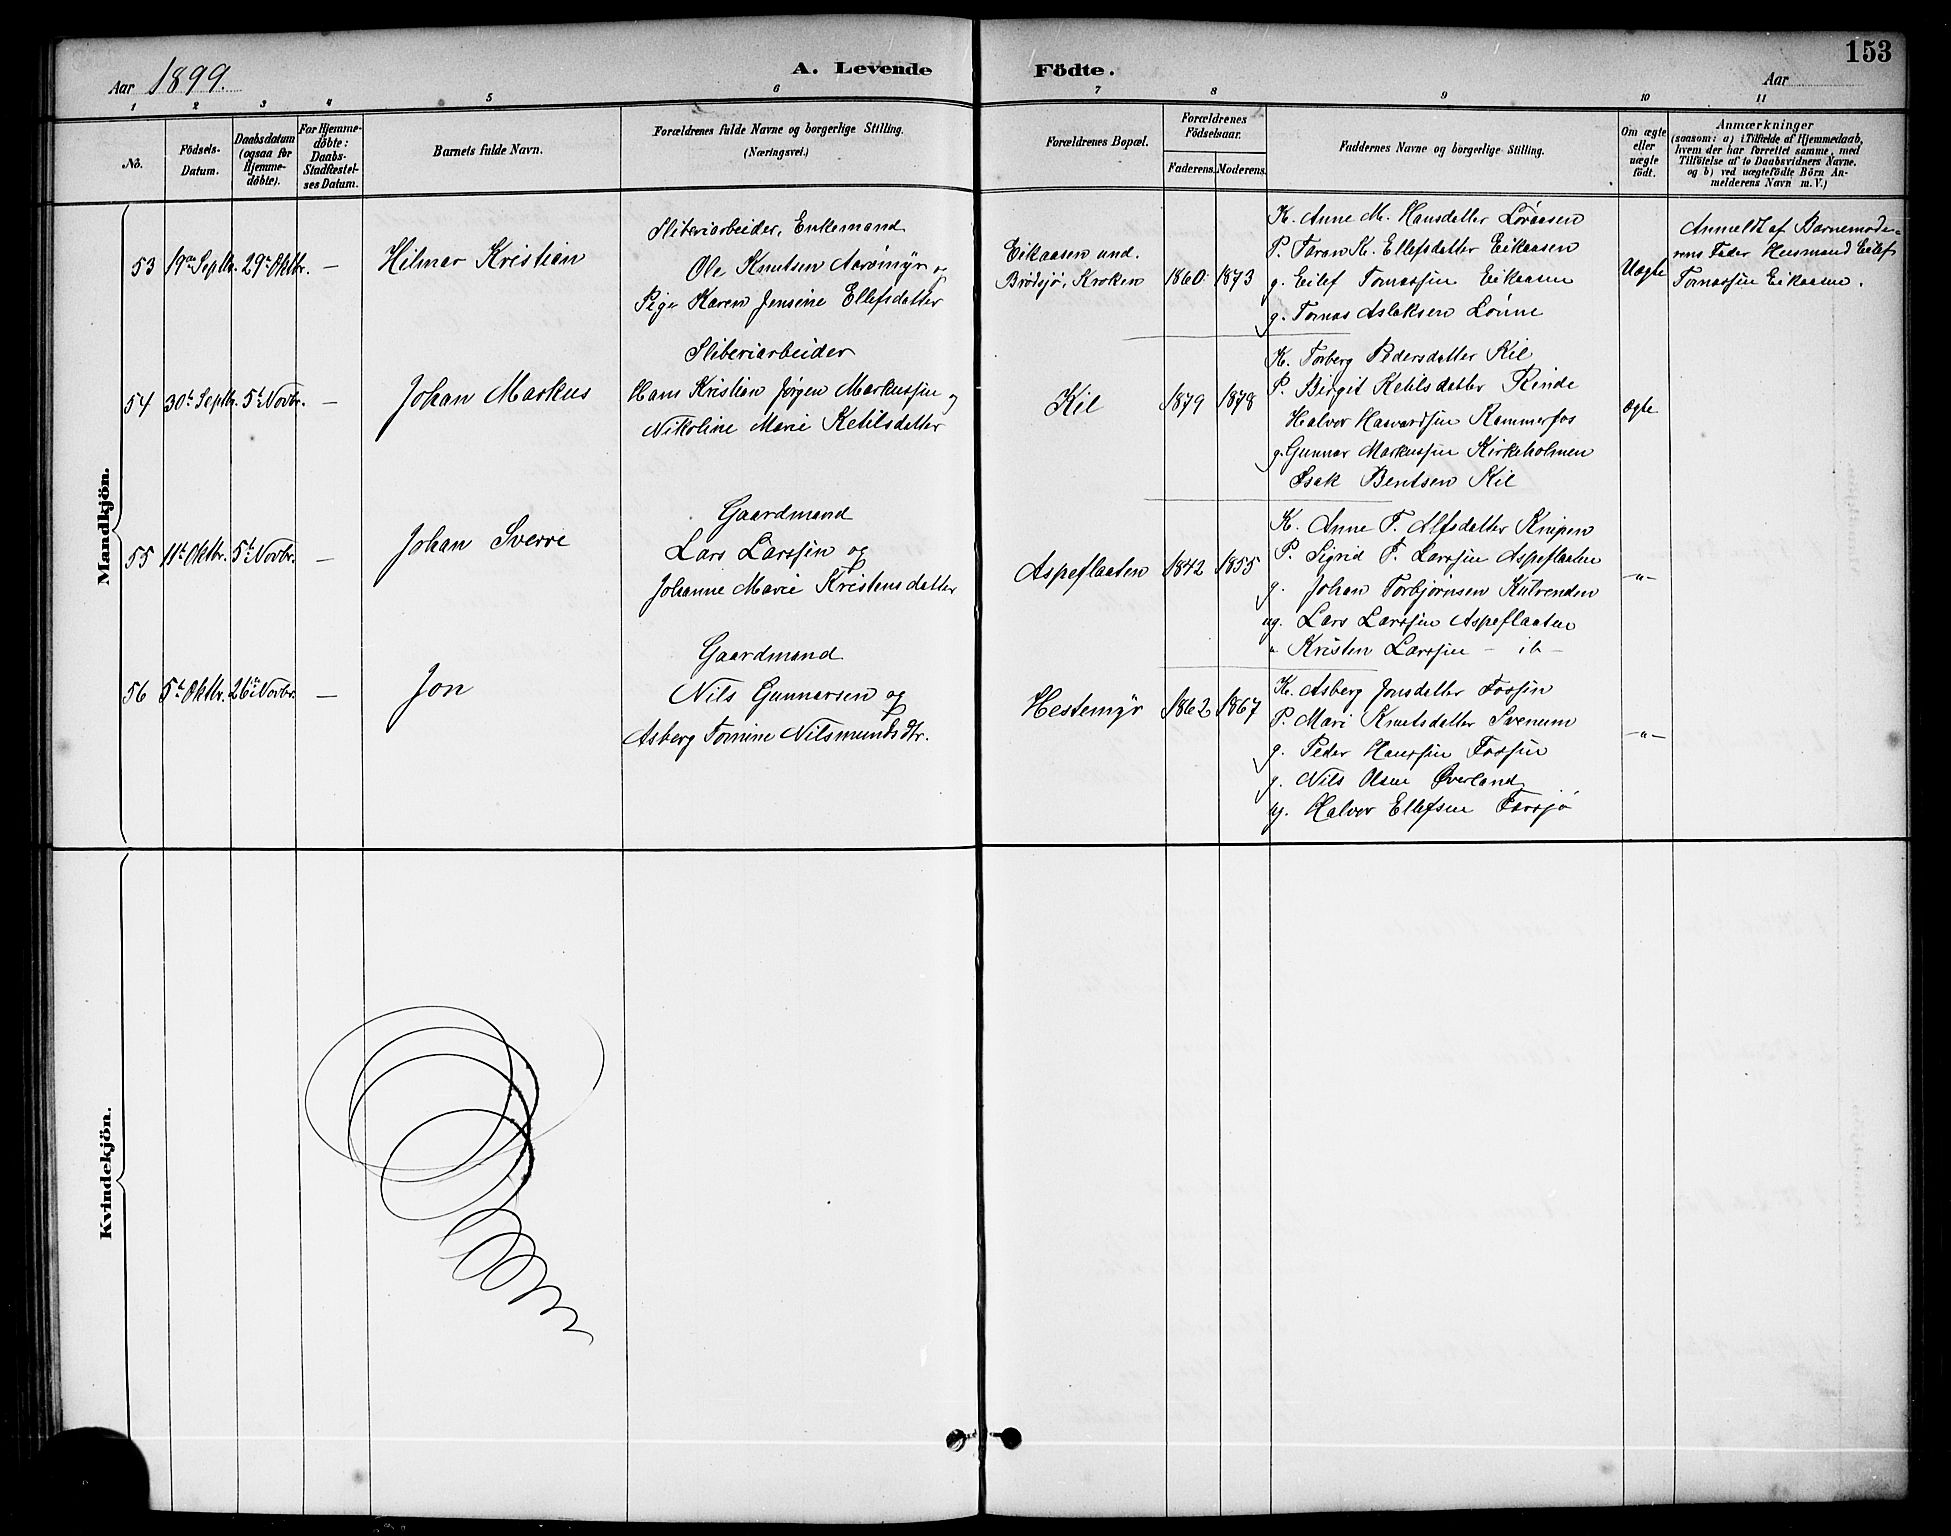 153
Aar 1899.
A. Levende Födte.
Aar
1 2 3 4 5 6 7 8 9 10 11
No.
Födsels-Datum.
Daabsdatum (ogsaa for Hjemme-döbte).
For Hjemme-döbte: Daabs-Stadfæstel-ses Datum.
Barnets fulde Navn.
Forældrenes fulde Navne og borgerlige Stilling. (Næringsvei.)
Forældrenes Bopæl.
Forældrenes Födselsaar.
Faderens. Moderens.
Faddernes Navne og borgerlige Stilling.
Om ægte eller uægte födt.
Anmærkninger
(saasom: a) i Tilfælde af Hjemmedaab,
hvem der har forrettet samme, med
Tilföielse af to Daabsvidners Navne.
og b) ved uægtefödte Börn An-
melderens Navn m.V.)
Mandkjön.
53 19de Septbr. 29de Oktbr. — Hilmar Kristian
Sliberiarbeider, Enkemand
Ole Knutsen Aarømyr og
Pige Karen Jensine Ellefsdatter
Eikaasen und.
Brødsjø, Kroken
1860 1873
K. Anne M. Hansdatter Løraasen
P. Taran K. Ellefsdatter Eikaasen
g. Eilef Tomassen Eikaasen
g. Tomas Aslaksen Lønne
Uægte
Anmeldt af Barnemode-
rens Fader Husmand Eilef
Tomassen Eikaasen.
54 30te Septbr. 5te Novbr. — Johan Markus
Sliberiarbeider
Hans Kristian Jørgen Markussen og
Nikoline Marie Ketilsdatter
Kil
1879 1878
K. Torberg Pedersdatter Kil
P. Birgit Ketilsdatter Rinde
Halvor Havardsen Kammerfos
g. Gunnar Markussen Kirkeholmen
Isak Bentsen Kil
Ægte
55 11te Oktbr. 5te Novbr. — Johan Sverre
Gaardmand
Lars Larssen og
Johanne Marie Kristensdatter
Aspeflaaten
1842 1855
K. Anne T. Alfsdatter Knipen
P. Sigrid T. Larssen Aspeflaaten
g. Johan Torbjørnsen
ug. Lars Larssen Aspeflaaten
" Kristen Larssen — ib —
— " —
56 5te Oktbr. 26de Novbr. — Jon
Gaardmand
Nils Gunnarsen og
Asberg Tomine Nilsmundsdtr.
Hestemyr
1862 1867
K. Asberg Jonsdatter Fossen
P. Mari Knutsdatter Svenum
g. Peder Hanssen Fossen
g. Nils Olsen Øverland
ug. Halvor Ellefsen Farsjø
— " —
Kvindekjön.